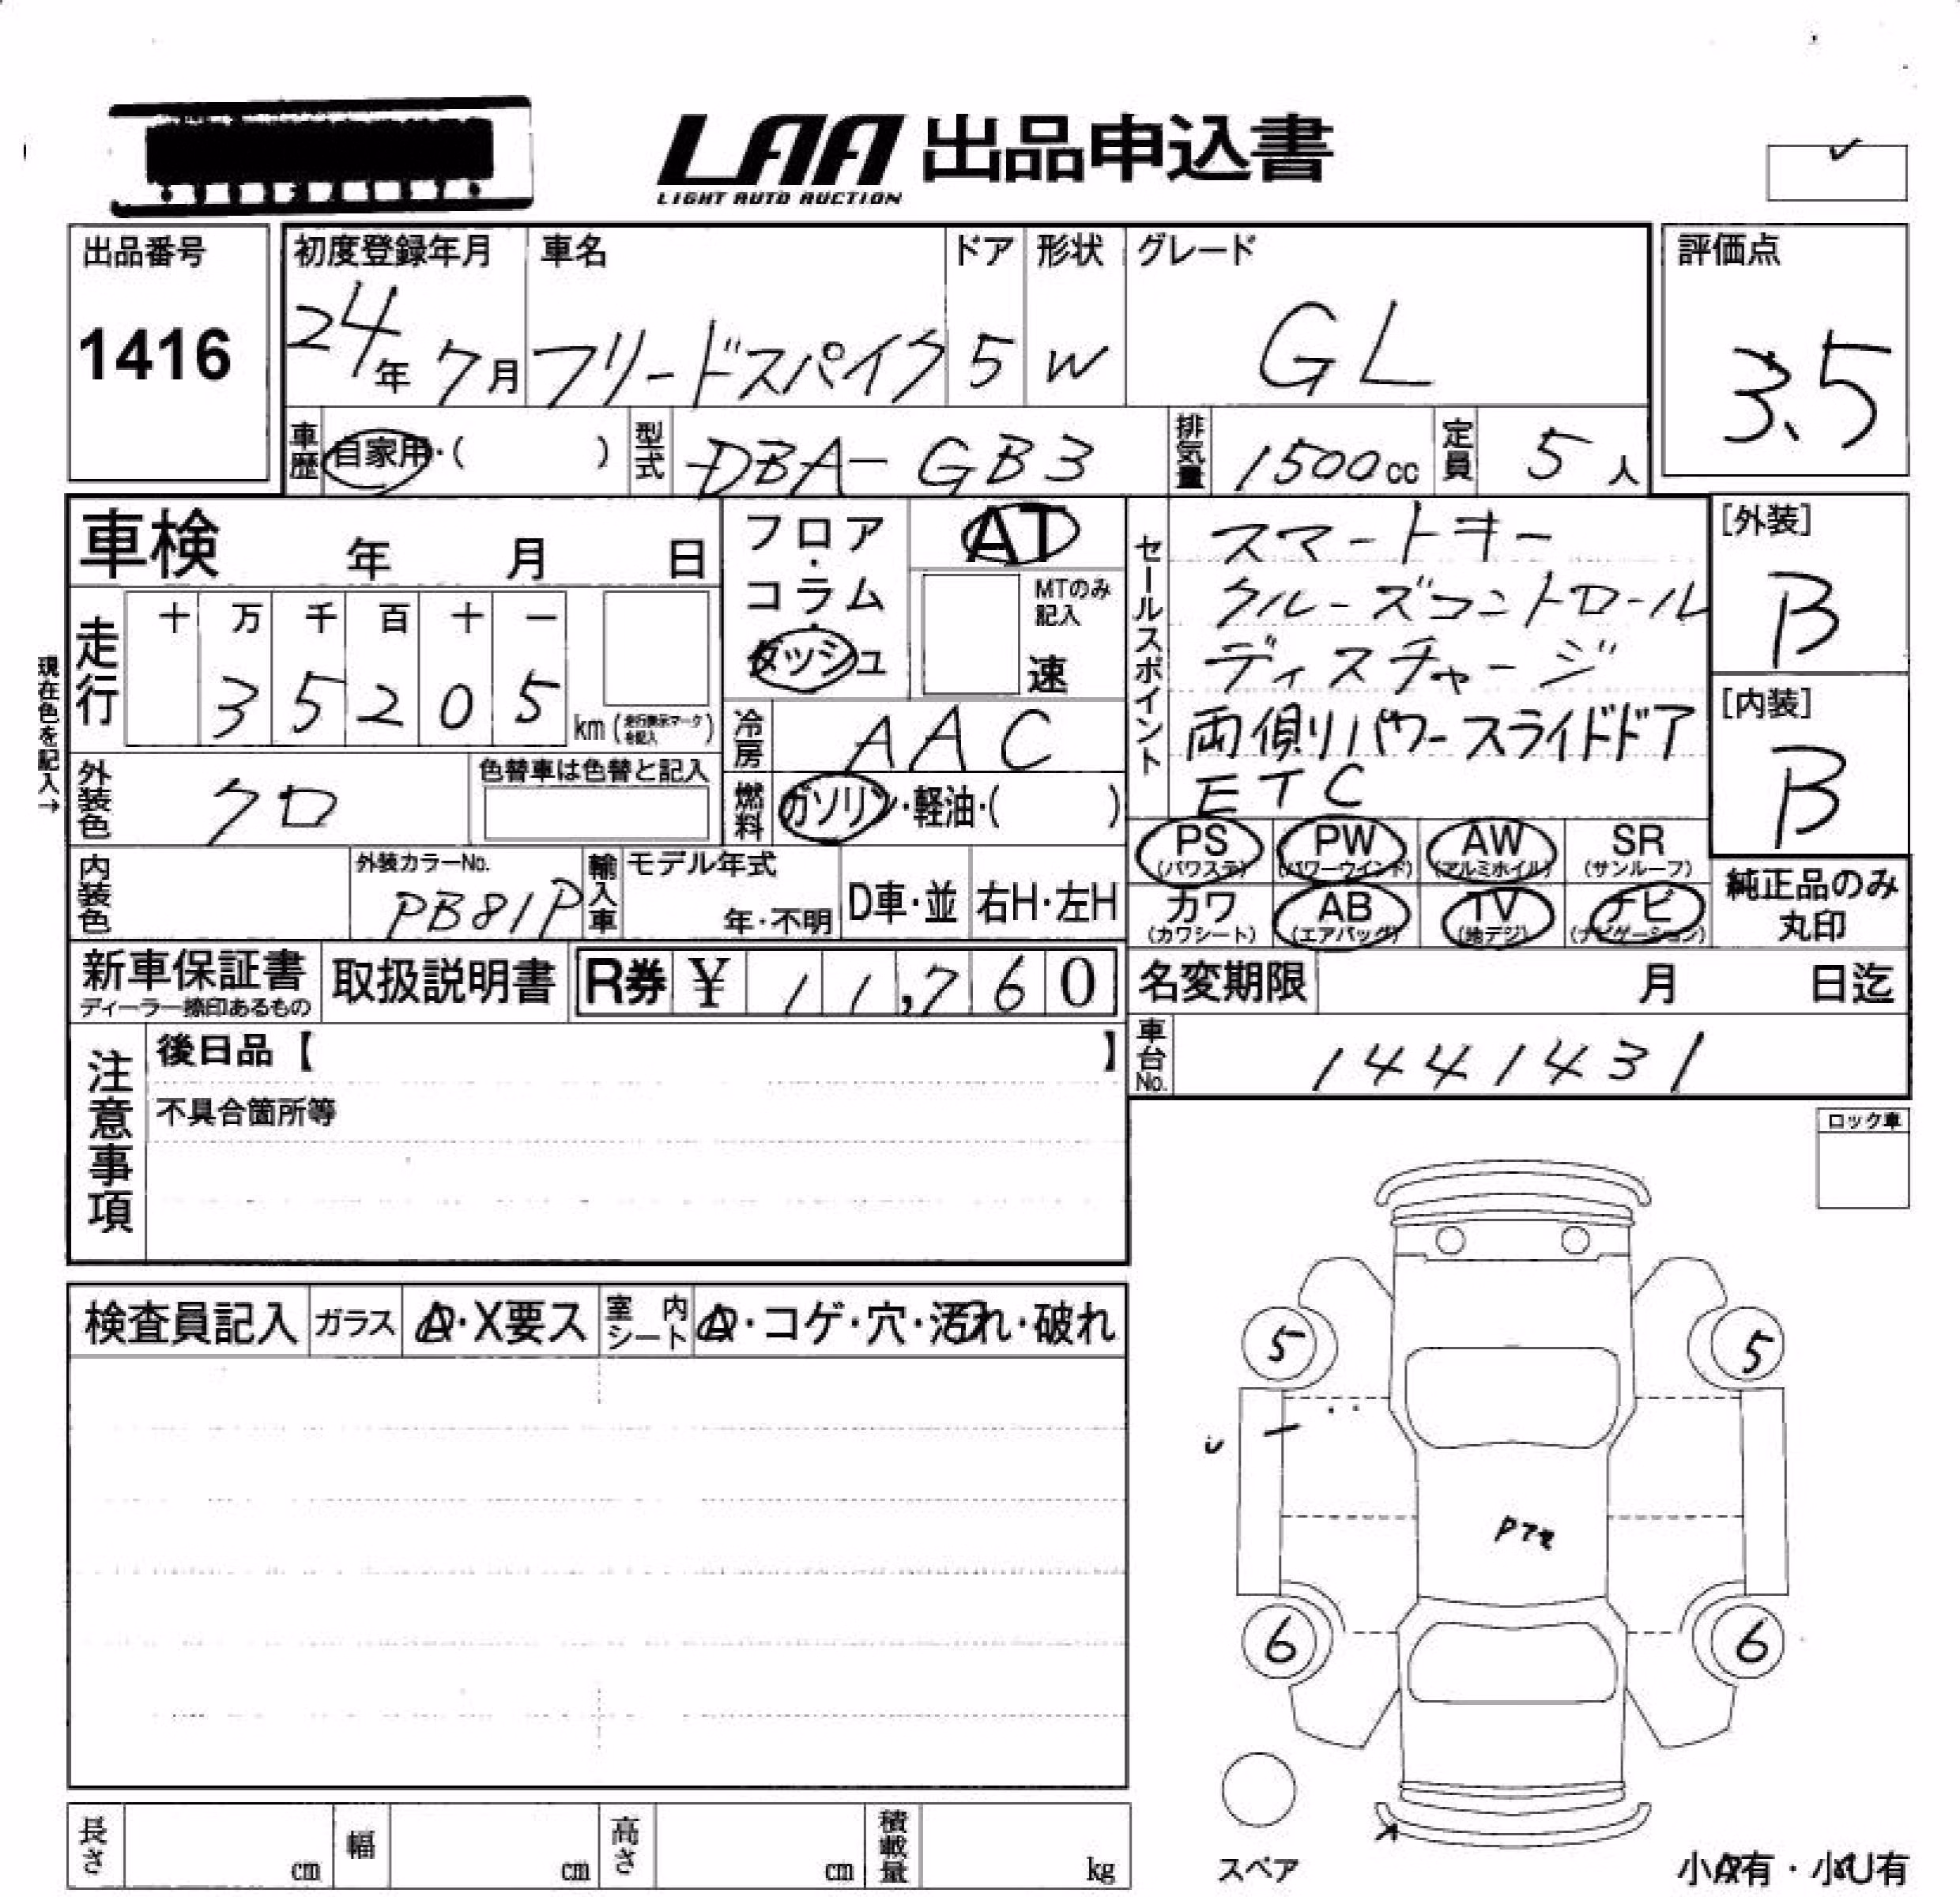 LAA 出品申込書
LIGHT AUTO AUCTION
出品番号
1416
初度登録年月
24年 7月
車名
フリードスパイク
ドア
5
形状
W
グレード
GL
評価点
3.5
車歴
自家用・( )
型式
DBA-GB3
排気量
1500cc
定員
5人
車検 年 月 日
フロア・コラム・ダッシュ
AT
MTのみ記入
速
セールスポイント
スマートキー
クルーズコントロール
ディスチャージ
両側パワースライドドア
ETC
[外装]
B
[内装]
B
現在色を記入→
走行
十 万 千 百 十 一
3 5 2 0 5
km (走行表示マークを記入)
冷房
AAC
外装色
クロ
色替車は色替と記入
燃料
ガソリン・軽油・( )
PS (パワステ)
PW (パワーウインド)
AW (アルミホイル)
SR (サンルーフ)
カワ (カワシート)
AB (エアバッグ)
TV (地デジ)
ナビ (ナビゲーション)
純正品のみ丸印
内装色
外装カラーNo.
PB81P
輸入車
モデル年式
年・不明
D車・並
右H・左H
新車保証書
ディーラー捺印あるもの
取扱説明書
R券 ¥ 11,760
名変期限 月 日迄
車台No.
1441431
注意事項
後日品【 】
不具合箇所等
ロック車
検査員記入
ガラス
A・X要ス
室内シート
A・コゲ・穴・汚れ・破れ
5
5
6
6
スペア
小A有・小U有
長さ cm
幅 cm
高さ cm
積載量 kg